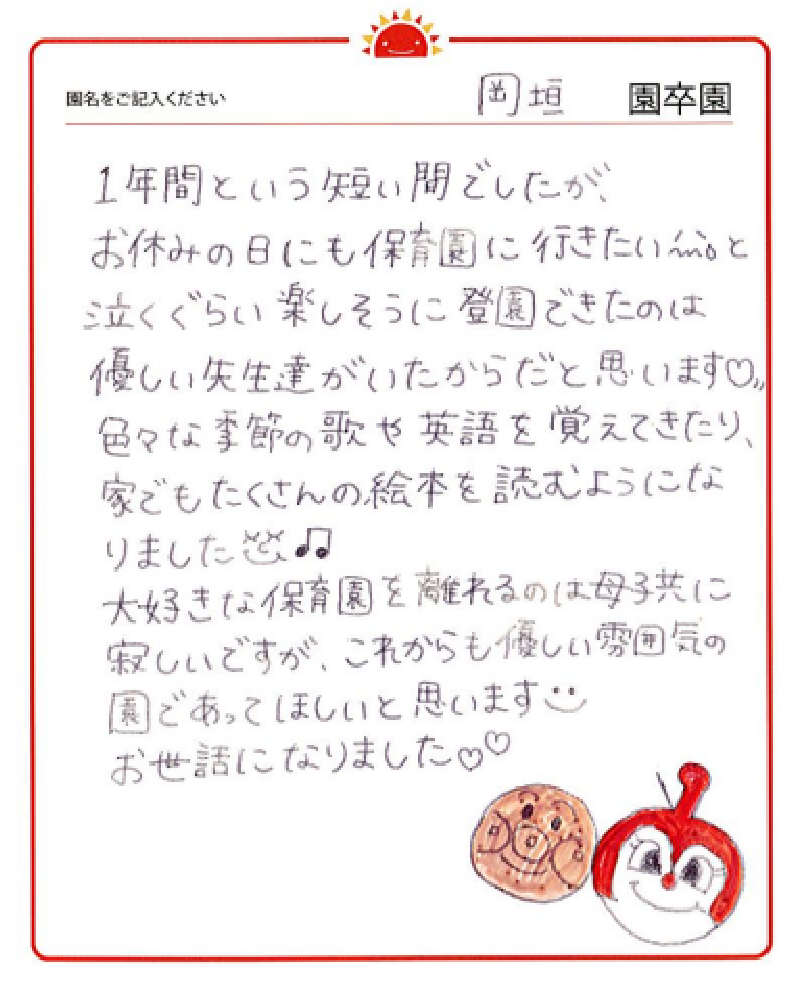 園名をご記入ください
岡垣 園卒園
1年間という短い間でしたが、
お休みの日にも保育園に行きたい と
泣くぐらい楽しそうに登園できたのは
優しい先生達がいたからだと思います♡
色々な季節の歌や英語を覚えてきたり、
家でもたくさんの絵本を読むようにな
りました♫
大好きな保育園を離れるのは母子共に
寂しいですが、これからも優しい雰囲気の
園であってほしいと思います
お世話になりました♡♡